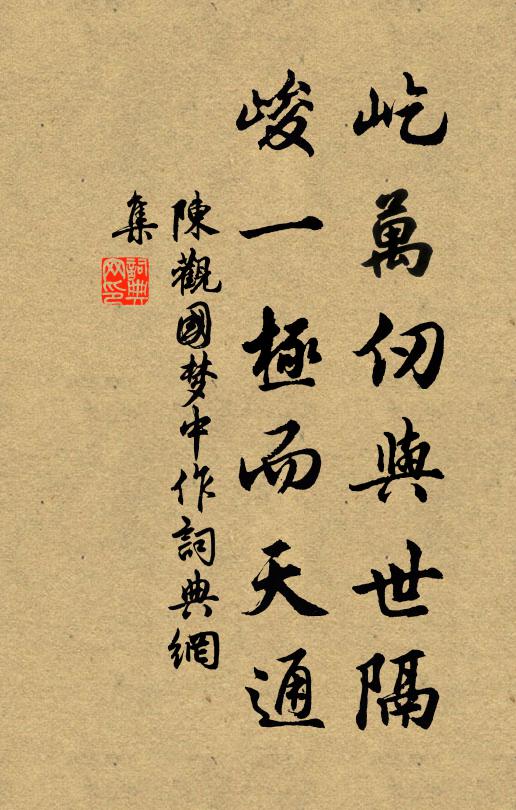 屹萬仞與世隔
峻一極而天通
陳觀國梦中作詞典網
集
詞典
网印